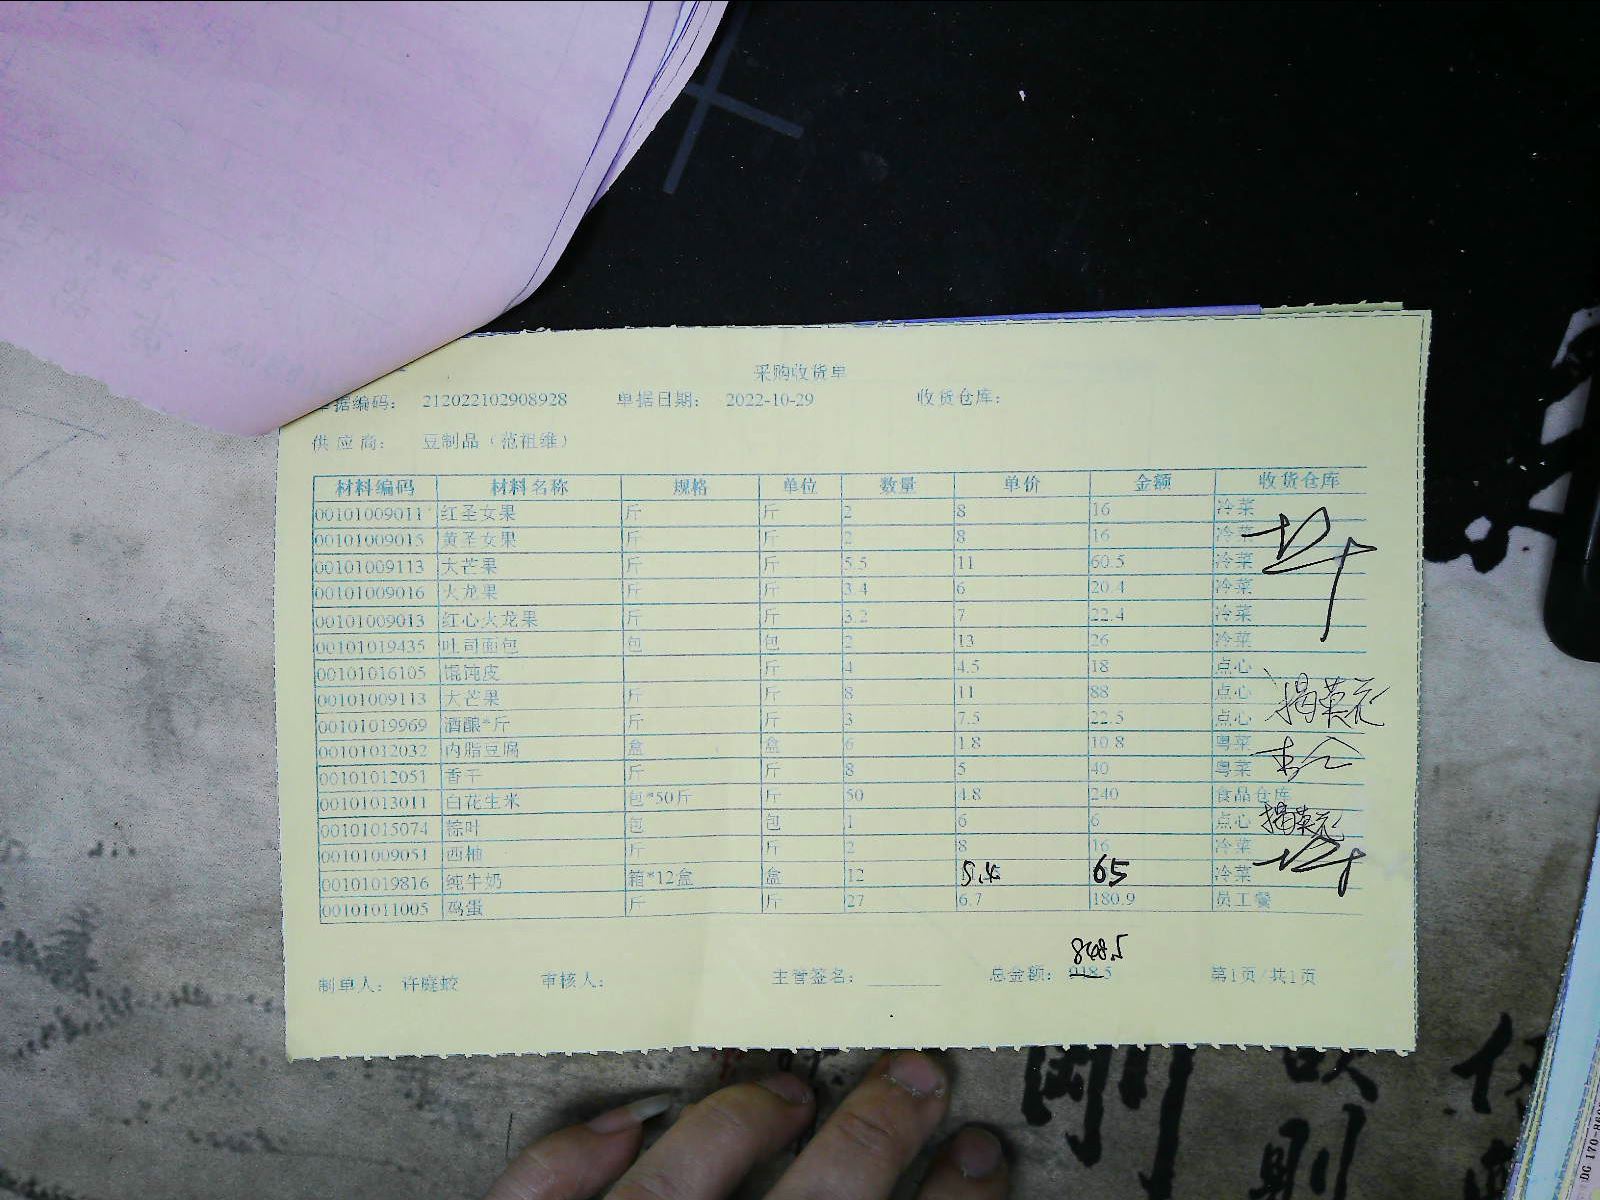 采购收货单
单据编码： 212022102908928 单据日期： 2022-10-29 收货仓库：
供应商： 豆制品（范祖维）
材料编码 材料名称 规格 单位 数量 单价 金额 收货仓库
00101009011 红圣女果 斤 斤 2 8 16 冷菜
00101009015 黄圣女果 斤 斤 2 8 16 冷菜
00101009113 大芒果 斤 斤 5.5 11 60.5 冷菜
00101009016 火龙果 斤 斤 3.4 6 20.4 冷菜
00101009013 红心火龙果 斤 斤 3.2 7 22.4 冷菜
00101019435 吐司面包 包 包 2 13 26 冷菜
00101016105 馄饨皮 斤 4 4.5 18 点心
00101009113 大芒果 斤 斤 8 11 88 点心
00101019969 酒酿*斤 斤 斤 3 7.5 22.5 点心
00101012032 内脂豆腐 盒 盒 6 1.8 10.8 粤菜
00101012051 香干 斤 斤 8 5 40 粤菜
00101013011 白花生米 包*50斤 斤 50 4.8 240 食品仓库
00101015074 粽叶 包 包 1 6 6 点心
00101009051 西柚 斤 斤 2 8 16 冷菜
00101019816 纯牛奶 箱*12盒 盒 12 5.4 65 冷菜
00101011005 鸡蛋 斤 斤 27 6.7 180.9 员工餐
848.5
制单人： 许庭蛟 审核人： 主管签名： 总金额： 第1页/共1页
DG 170-86